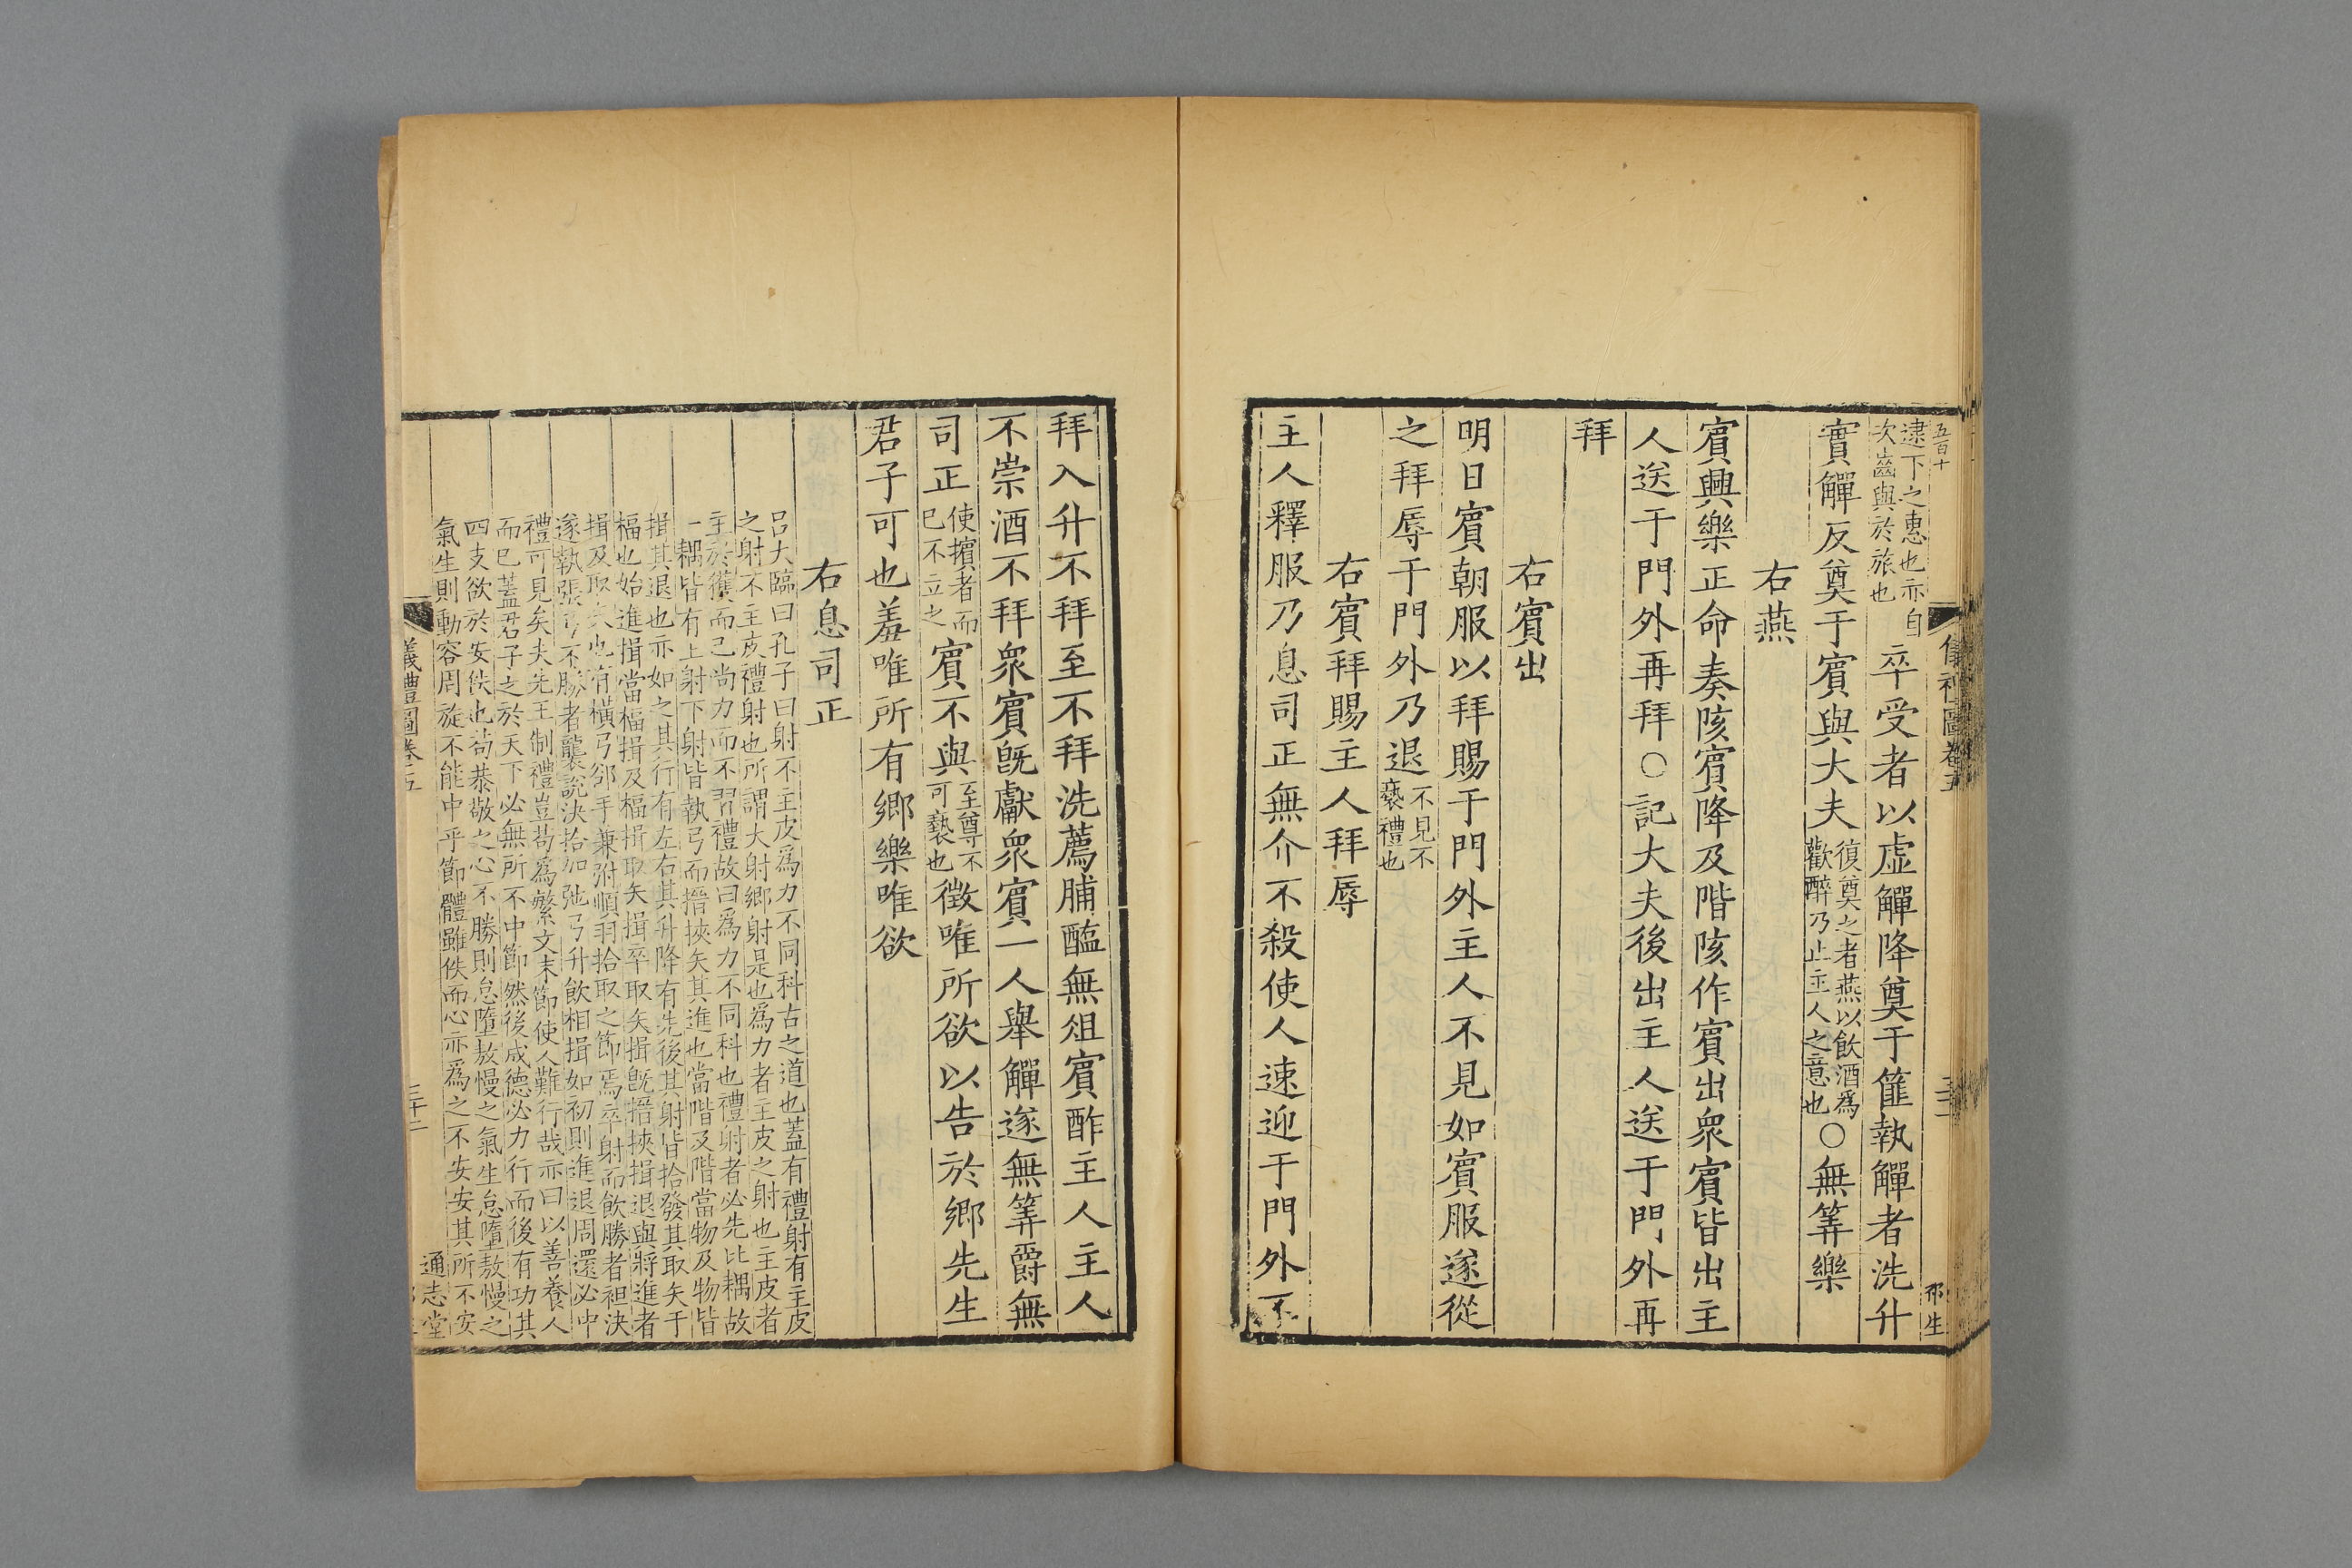 五百十
儀禮圖卷五
逮下之惠也亦自
次齒與於旅也
卒受者以虛觶降奠于篚執觶者洗升
實觶反奠于賓與大夫
復奠之者燕以飲酒爲
歡醉乃止主人之意也
○無筭樂
右燕
賓興樂正命奏陔賓降及階陔作賓出衆賓皆出主
人送于門外再拜○記大夫後出主人送于門外再
拜
右賓出
明日賓朝服以拜賜于門外主人不見如賓服遂從
之拜辱于門外乃退
不見不
褻禮也
右賓拜賜主人拜辱
主人釋服乃息司正無介不殺使人速迎于門外不
拜入升不拜至不拜洗薦脯醢無俎賓酢主人主人
不崇酒不拜衆賓旣獻衆賓一人舉觶遂無筭爵無
司正
使擯者而
已不立之
賓不與
至尊不
可褻也
徵唯所欲以告於鄉先生
君子可也羞唯所有鄉樂唯欲
右息司正
呂大臨曰孔子曰射不主皮爲力不同科古之道也蓋有禮射有主皮
之射不主皮禮射也所謂大射鄉射是也爲力者主皮之射也主皮者
主於獲而已尚力而不習禮故曰爲力不同科也禮射者必先比耦故
一耦皆有上射下射皆執弓而搢挾矢其進也當階及階當物及物皆
揖其退也亦如之其行有左右其升降有先後其射皆拾發其取矢于
楅也始進揖當楅揖及楅揖取矢揖卒取矢揖旣搢挾揖退與將進者
揖及取矢也有橫弓郤手兼弣順羽拾取之節焉卒射而飲勝者袒決
遂執張弓不勝者襲說決拾加弛弓升飲相揖如初則進退周還必中
禮可見矣夫先王制禮豈苟爲繁文末節使人難行哉亦曰以善養人
而已蓋君子之於天下必無所不中節然後成德必力行而後有功其
四支欲於安佚也苟恭敬之心不勝則怠墮敖慢之氣生怠墮敖慢之
氣生則動容周旋不能中乎節體雖佚而心亦爲之不安安其所不安
儀禮圖卷五
三十二
通志堂